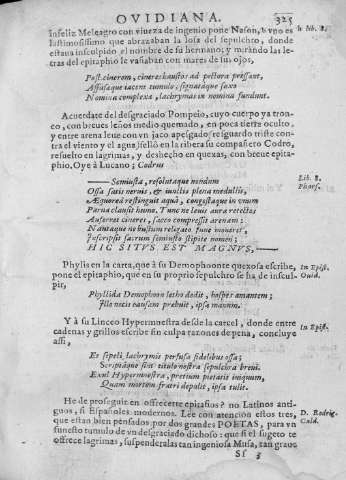 OVIDIANA. 325
Infeliz Meleagro con viueza de ingenio pone Nason, y vno es h lib. 8.
lastimosissimo que abraçaba la losa del sepulchro, donde
estaua insculpido el nombre de su hermano; y mirando las le-
tras del epitaphio le vañaban con mares de sus ojos,
Post cinerem, cineres haustos ad pectora pressant,
Affusaque iacent tumulo; signataque saxo
Nomina complexæ, lachrymas in nomina fundunt.
Acuerdate del desgraciado Pompeio, cuyo cuerpo ya tron-
co, con breues leños medio quemado, en poca tierra oculto,
y entre arena leue con vn jaco apesgado, resguardo triste con-
tra el viento y el agua, selló en la ribera su compañero Codro,
resuelto en lagrimas, y deshecho en quexas, con breue epita-
phio. Oye à Lucano; Codrus
Lib. 8. Phars.
Semiusta, resolutaque nondum
Ossa satis neruis, & inustis plena medullis,
Æquorea restinguit aqua, congestaque in vnum
Parua clausit humo. Tunc ne leuis aura retectos
Auferret cineres, saxo compressit arenam:
Nautaque ne bustum religato fune moueret,
Inscripsit sacrum semiusto stipite nomen;
HIC SITVS EST MAGNVS,
Phylis en la carta, que à su Demophoonte quexosa escribe, In Epist.
pone el epitaphio, que en su proprio sepulchro se ha de inscul- Ouid.
pir,
Phyllida Demophoon letho dedit, hospes amantem;
Ille necis causam prebuit, ipsa manum.
Y à su Linceo Hypermnestra desde la carcel, donde entre In Epist.
cadenas y grillos escribe sin culpa razones de pena, concluye
assi,
Et sepeli lachrymis perfusa fidelibus ossa;
Scriptaque sint titulo nostra sepulchra breui.
Exul Hypermnestra, pretium pietatis iniquum,
Quam mortem fratri depulit, ipsa tulit.
He de proseguir en ofrecerte epitafios? no Latinos anti-
guos, si Españoles modernos. Lee con atencion estos tres, D. Rodrig.
que estan bien pensados por dos grandes POETAS, para vn Cald.
funesto tumulo de vn desgraciado dichoso: que si el sugeto te
ofrece lagrimas, suspenderalas tan ingeniosa Musa, tan graue
Sf 3